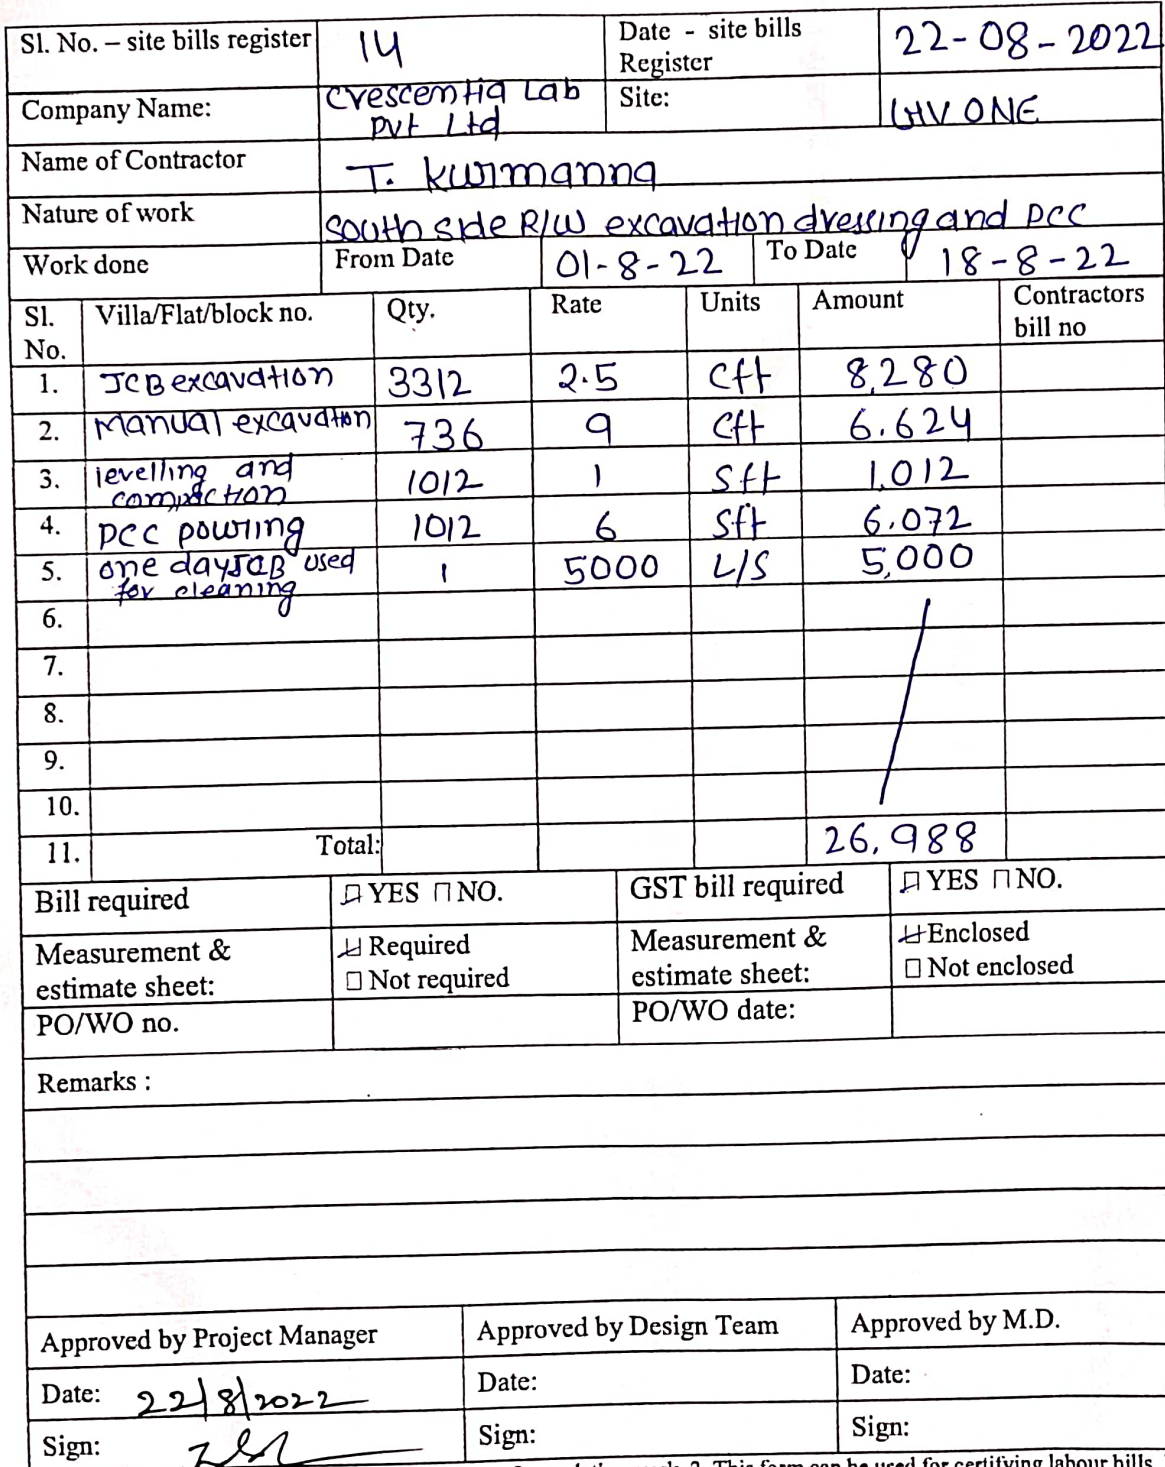 Sl. No. – site bills register 14 Date - site bills Register 22-08-2022
Company Name: Crescentia Lab Pvt Ltd Site: GHV ONE
Name of Contractor T. Kurmanna
Nature of work South side R/W excavation dressing and PCC
Work done From Date 01-8-22 To Date 18-8-22
Sl. No. Villa/Flat/block no. Qty. Rate Units Amount Contractors bill no
1. JCB excavation 3312 2.5 Cft 8,280
2. Manual excavation 736 9 Cft 6.624
3. levelling and compaction 1012 1 Sft 1,012
4. PCC pouring 1012 6 Sft 6.072
5. one day JCB used for cleaning 1 5000 L/S 5,000
6.
7.
8.
9.
10.
11. Total: 26,988
Bill required YES NO. GST bill required YES NO.
Measurement & estimate sheet: Required Not required Measurement & estimate sheet: Enclosed Not enclosed
PO/WO no. PO/WO date:
Remarks :
Approved by Project Manager Approved by Design Team Approved by M.D.
Date: 22/8/2022 Date: Date:
Sign: Sign: Sign:
2. This form can be used for certifying labour bills